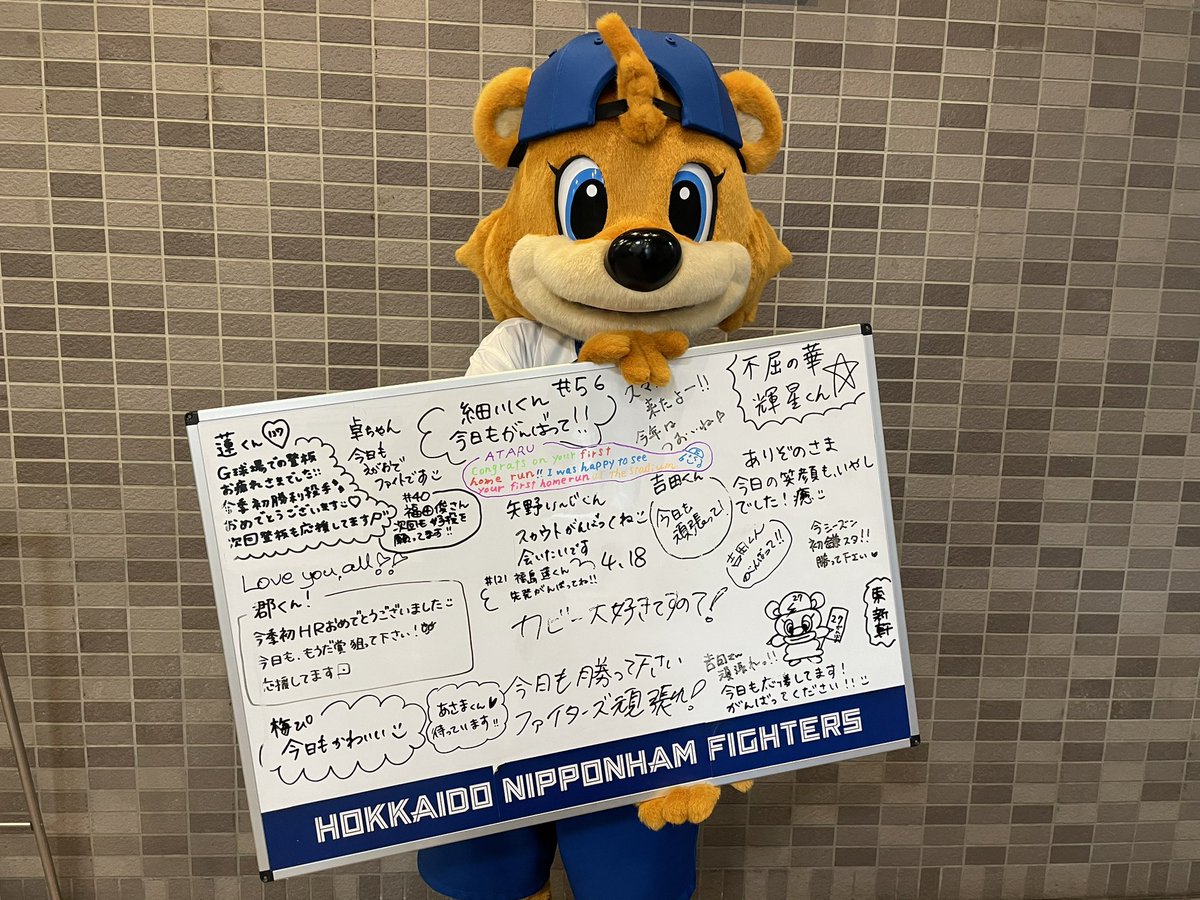 蓮くん 137
G球場での登板
お疲れさまでした!!
今季初勝利投手
おめでとうございます
次回登板も応援してます
卓ちゃん
今日も
えがおで
ファイトです
#40
福田俊さん
次回も好投を
願ってます!!
細川くん #56
今日もがんばって!!
来たよー!!
今年は
つよいね
不屈の華
輝星くん
ATARU
Congrats on your first
home run!! I was happy to see
your first homerun at the stadium
矢野
スカウトがんばってくね
会いたいです
4.18
#121 福島蓮くん
先発がんばってね!!
吉田くん
今日も
頑張って!
ありぞのさま
今日の笑顔も、いやし
でした!癒
吉田くん
がんばって!!
今シーズン
初鎌スタ!!
勝って下さい
Love you, all!!
郡くん!
今季初HRおめでとうございました
今日も、もうだ賞狙って下さい!
応援してます
カビー大好きですので!
27
東新軒
梅ぴ
今日もかわいい
あさまくん
待っています!!
今日も勝って下さい
ファイターズ頑張れ!
吉田さん
頑張れっ!!
今日も応援してます!
がんばってください!!
HOKKAIDO NIPPONHAM FIGHTERS